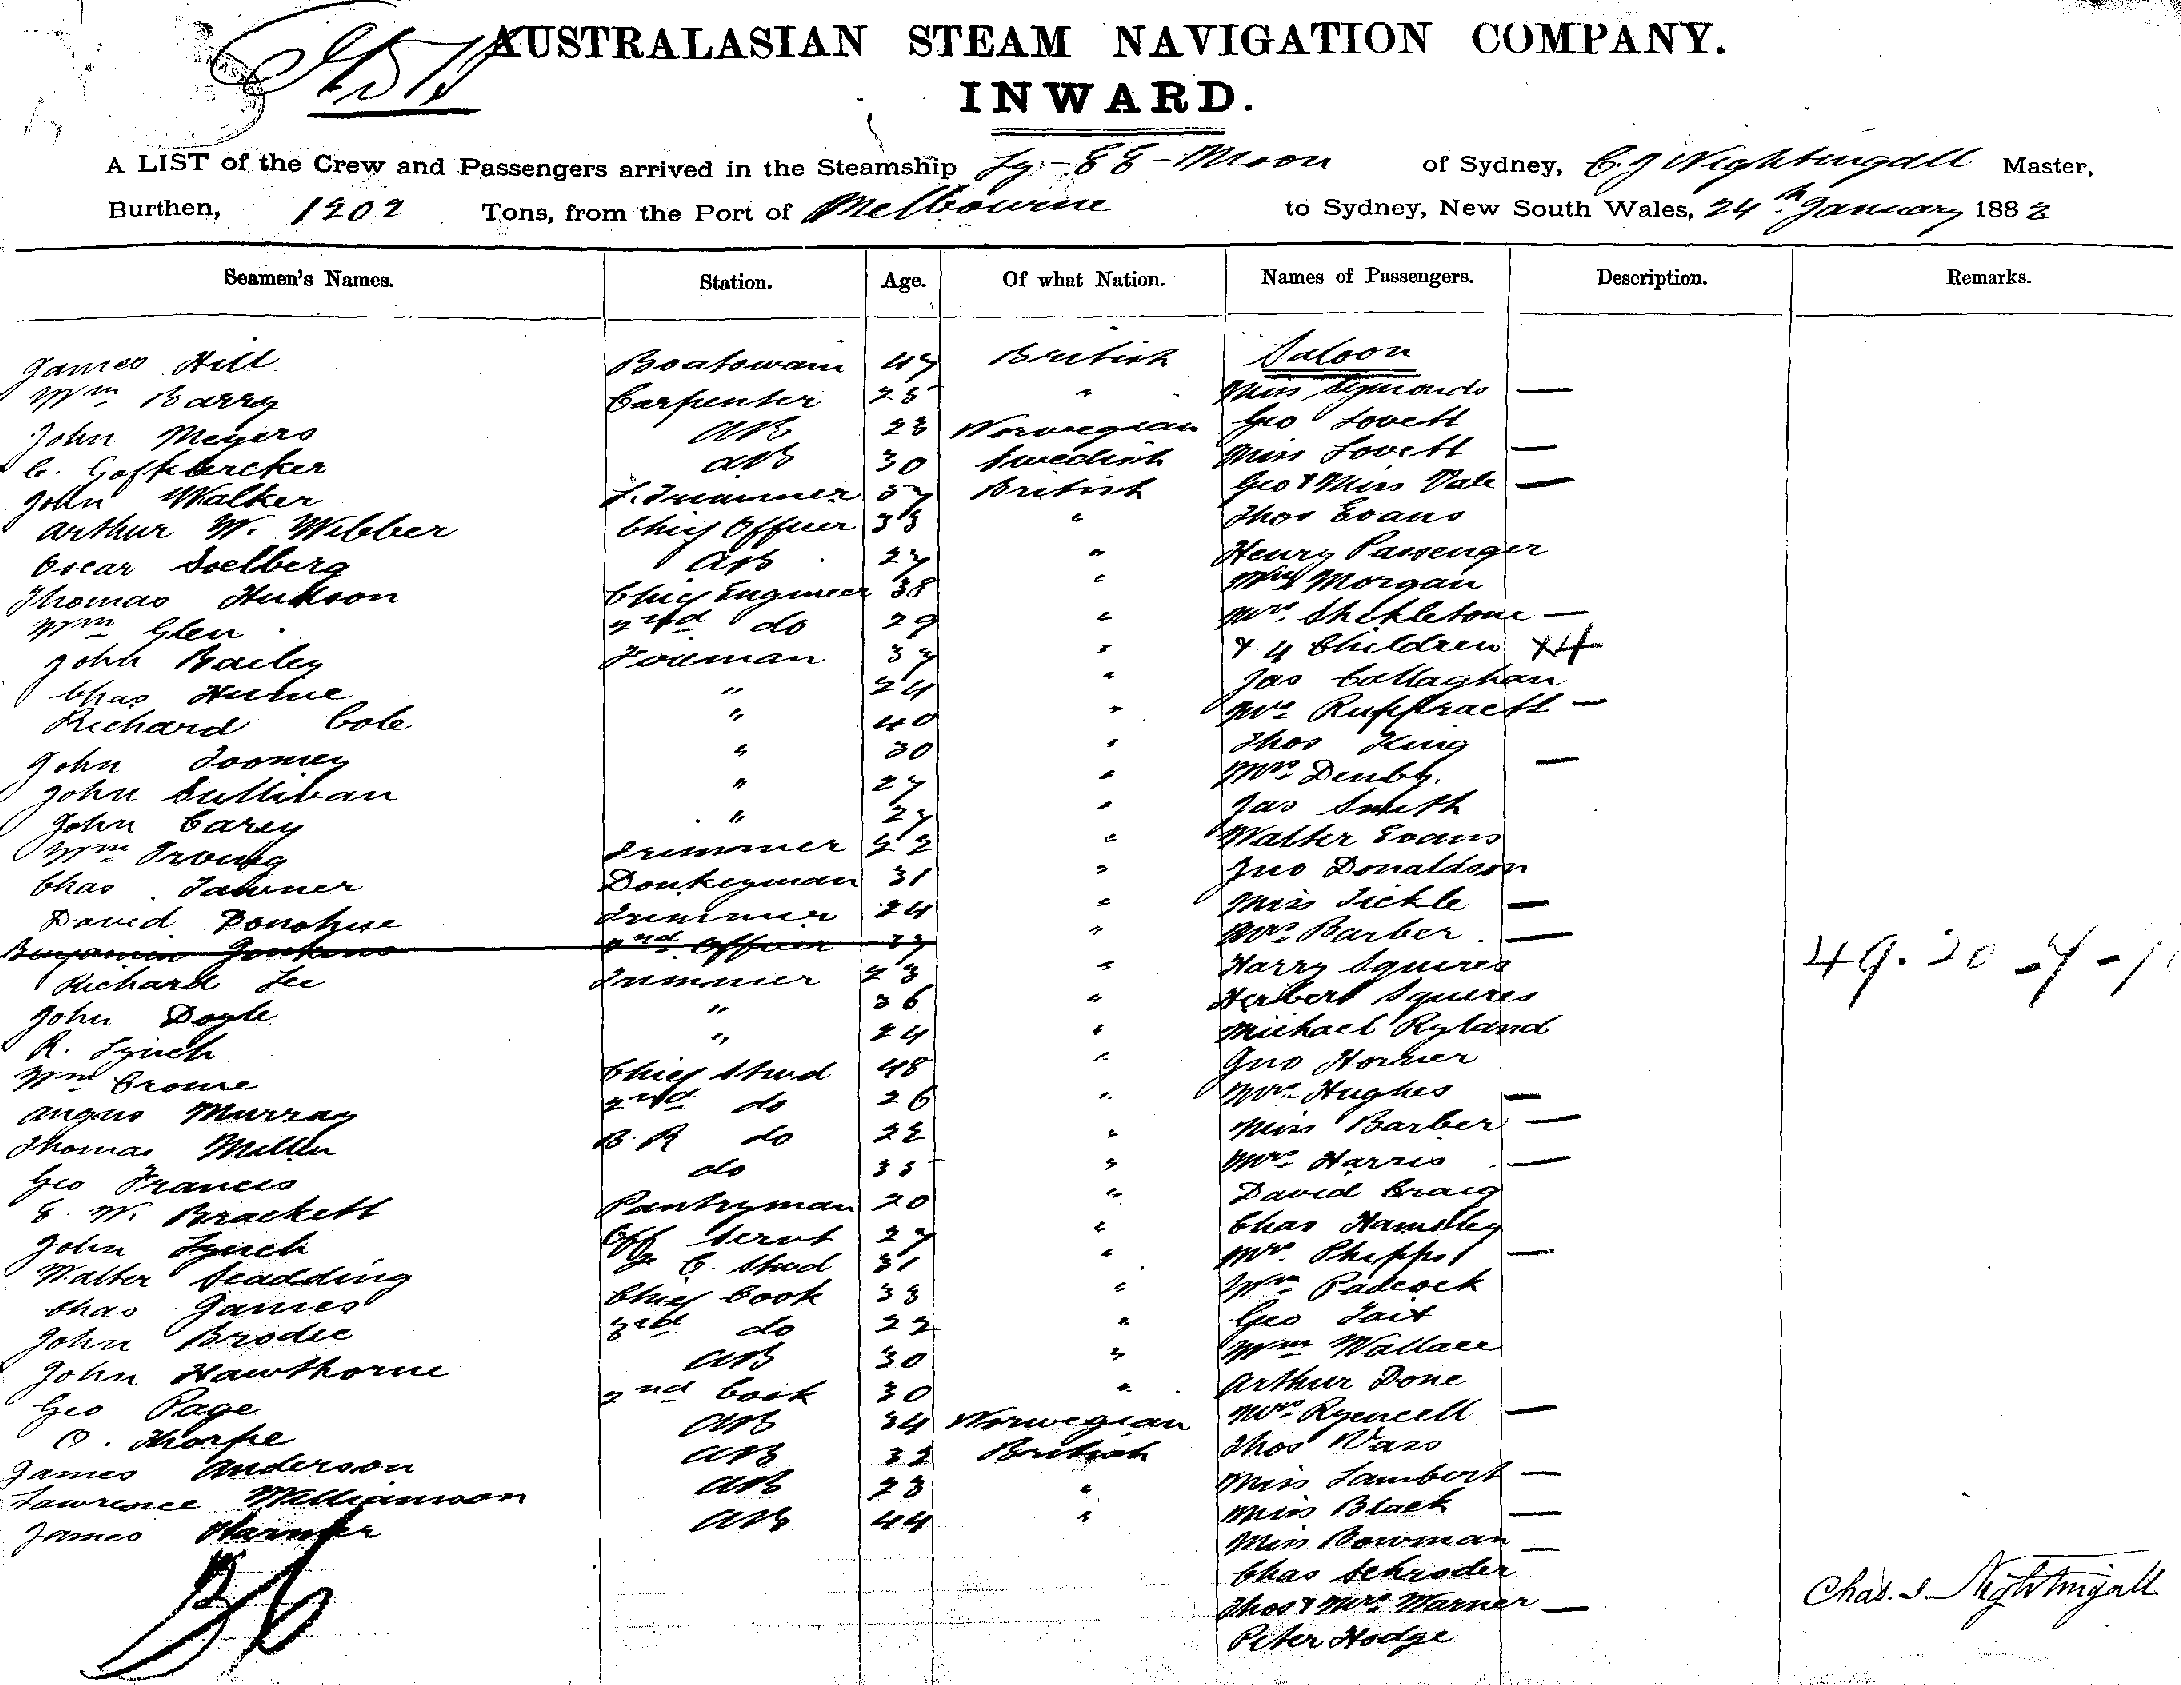 AUSTRALASIAN STEAM NAVIGATION COMPANY.
INWARD.
A LIST of the Crew and Passengers arrived in the Steamship Ly-EE-Moon of Sydney, C. J Nightingall Master,
Burthen, 1202 Tons, from the Port of Melbourne to Sydney, New South Wales, 24th January 1882
Seamen's Names. Station. Age. Of what Nation. Names of Passengers. Description. Remarks.
James Hill Boatswain 47 British Saloon
Wm Barry Carpenter 25 " Miss Symonds —
John Meyers AB 23 Norwegian Geo Lovett
C. AB 30 Swedish Miss Lovett —
John Walker L. Trimmer 57 British Geo & Miss Vale —
Arthur W. Webber Chief Officer 33 " Thos Evans
Oscar Soelberg AB 27 " Henry Passenger
Thomas Chief Engineer 38 " Morgan
Wm Glen 2nd do 29 " Mrs. Shekletone —
John Bailey Foreman 37 " & 4 Children x4
Chas Hume " 24 " Jas Callaghan
Richard Cole " 40 " Mrs —
John Toomey " 30 " Thos King
John Sullivan " 27 " Mrs Denby. —
John Carey " 27 " Jas Smith
Wm Irving Trimmer 22 " Walter Evans
Chas Tawner Donkeyman 31 " Jno Donaldson
David Donohue Trimmer 24 " Miss Tickle —
Benjamin Jenkins 2nd Officer 37 " Mrs Barber —
Richard Lee Trimmer 23 " Harry Squires
John Doyle " 36 " Herbert Squires
R. Lynch " 24 " Michael Ryland
Wm Crowe Chief Stwd 48 " Jno Horner
Angus Murray 2nd do 26 " Mrs Hughes —
Thomas Miller B. R do 22 " Miss Barber —
Geo Francis do 35 " Mrs Harris —
E. W. Brackett Pantryman 20 " David Craig
John Lynch Off Servt 27 " Chas Hamsley
Walter Scadding C. Stwd 31 " Mrs. Phipps —
Chas James Chief Cook 33 " Wm Padcock
John Brodie 3rd do 22 " Geo Tait
John Hawthorne AB 30 " Wm Wallace
Geo Page 2nd Cook 30 " Arthur Done
O. Thorpe AB 34 Norwegian Mrs Ryencell —
James Anderson AB 32 British Thos Wass
Lawrence Williamson AB 23 " Miss Lambert —
James AB 44 " Miss Black —
Miss Bowman —
Chas Schroder
Thos & Mrs Warner —
Peter Hodge
Chas. J. Nightingall